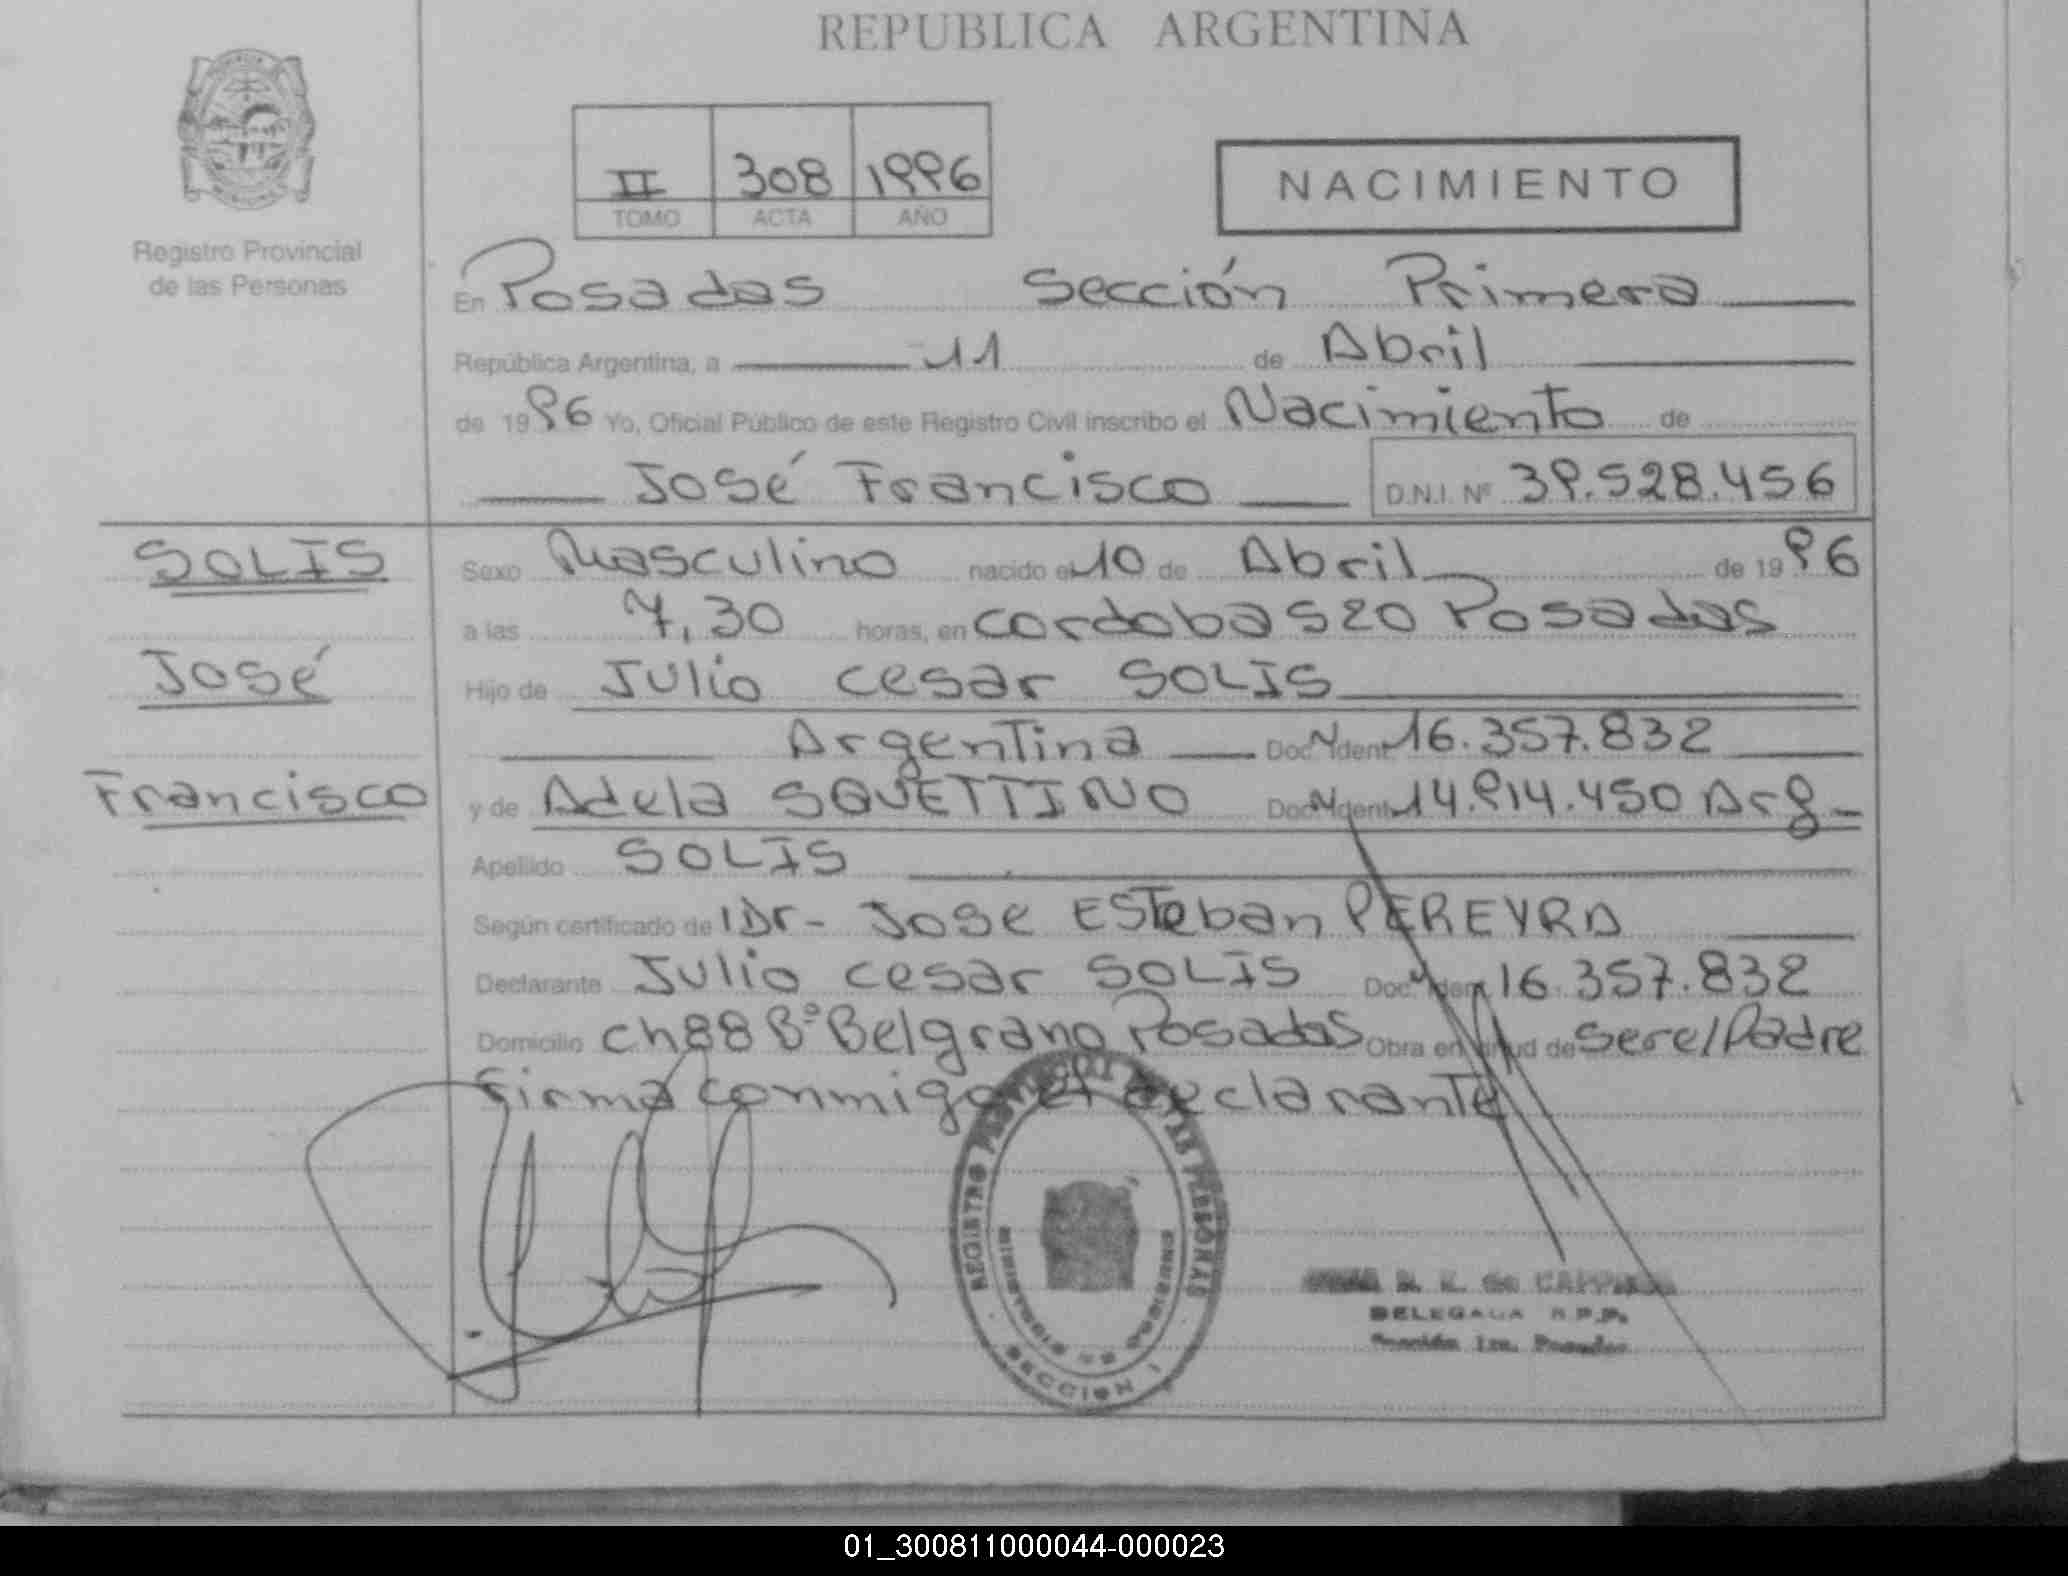 REPUBLICA ARGENTINA
II 308 1996
TOMO ACTA AÑO
NACIMIENTO
Registro Provincial
de las Personas
En Posadas Sección Primera
República Argentina, a 11 de Abril
de 1996 Yo, Oficial Público de este Registro Civil inscribo el Nacimiento de
José Francisco D.N.I. Nº 39.528.456
SOLIS
José
Francisco
Sexo Masculino nacido el 10 de Abril de 1996
a las 7,30 horas, en cordoba 520 Posadas
Hijo de Julio cesar SOLIS
Argentina Doc. Ident. 16.357.832
y de Adela SQUETTINO Doc. Ident. 14.914.450 Arg
Apellido SOLIS
Según certificado de Dr- Jose ESTeban PEREYRA
Declarante Julio cesar SOLIS Doc. Ident. 16.357.832
Domicilio ch 88 Bº Belgrano Posadas Obra en virtud de Ser el Padre
Firma conmigo el declarante
REGISTRO PROVINCIAL DE LAS PERSONAS
MINISTERIO DE GOBIERNO
SECCION 1
de
DELEGADA R.P.P.
Sección 1ra. Posadas
01_300811000044-000023